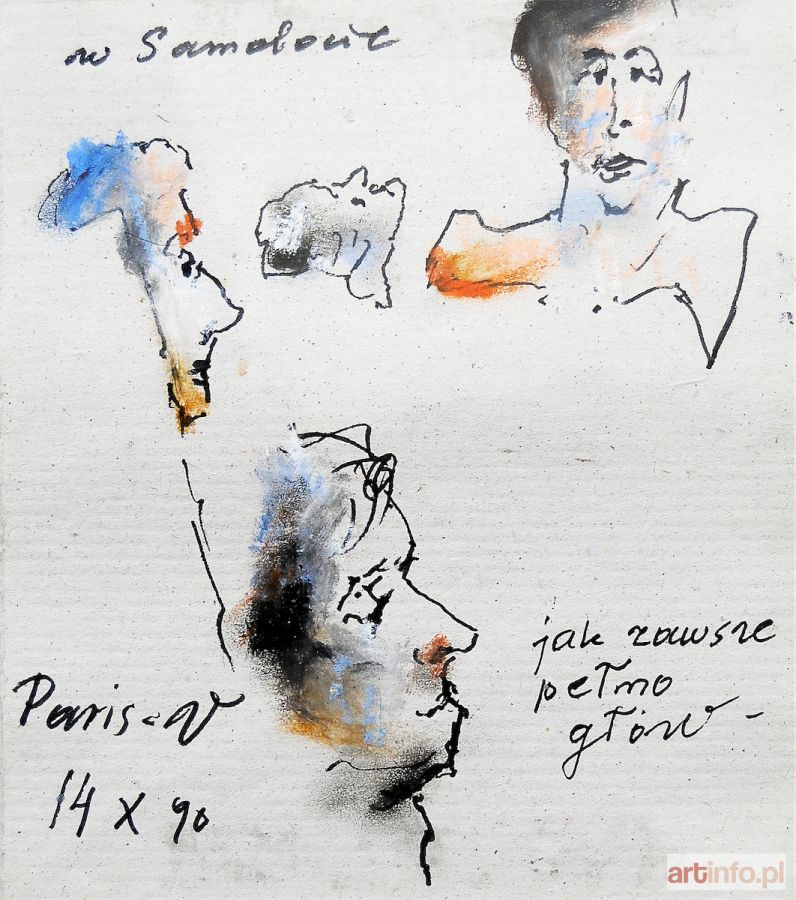 w Samolocie
jak zawsze
pełno
głów -
Paris -
14 X 90
artinfo.pl